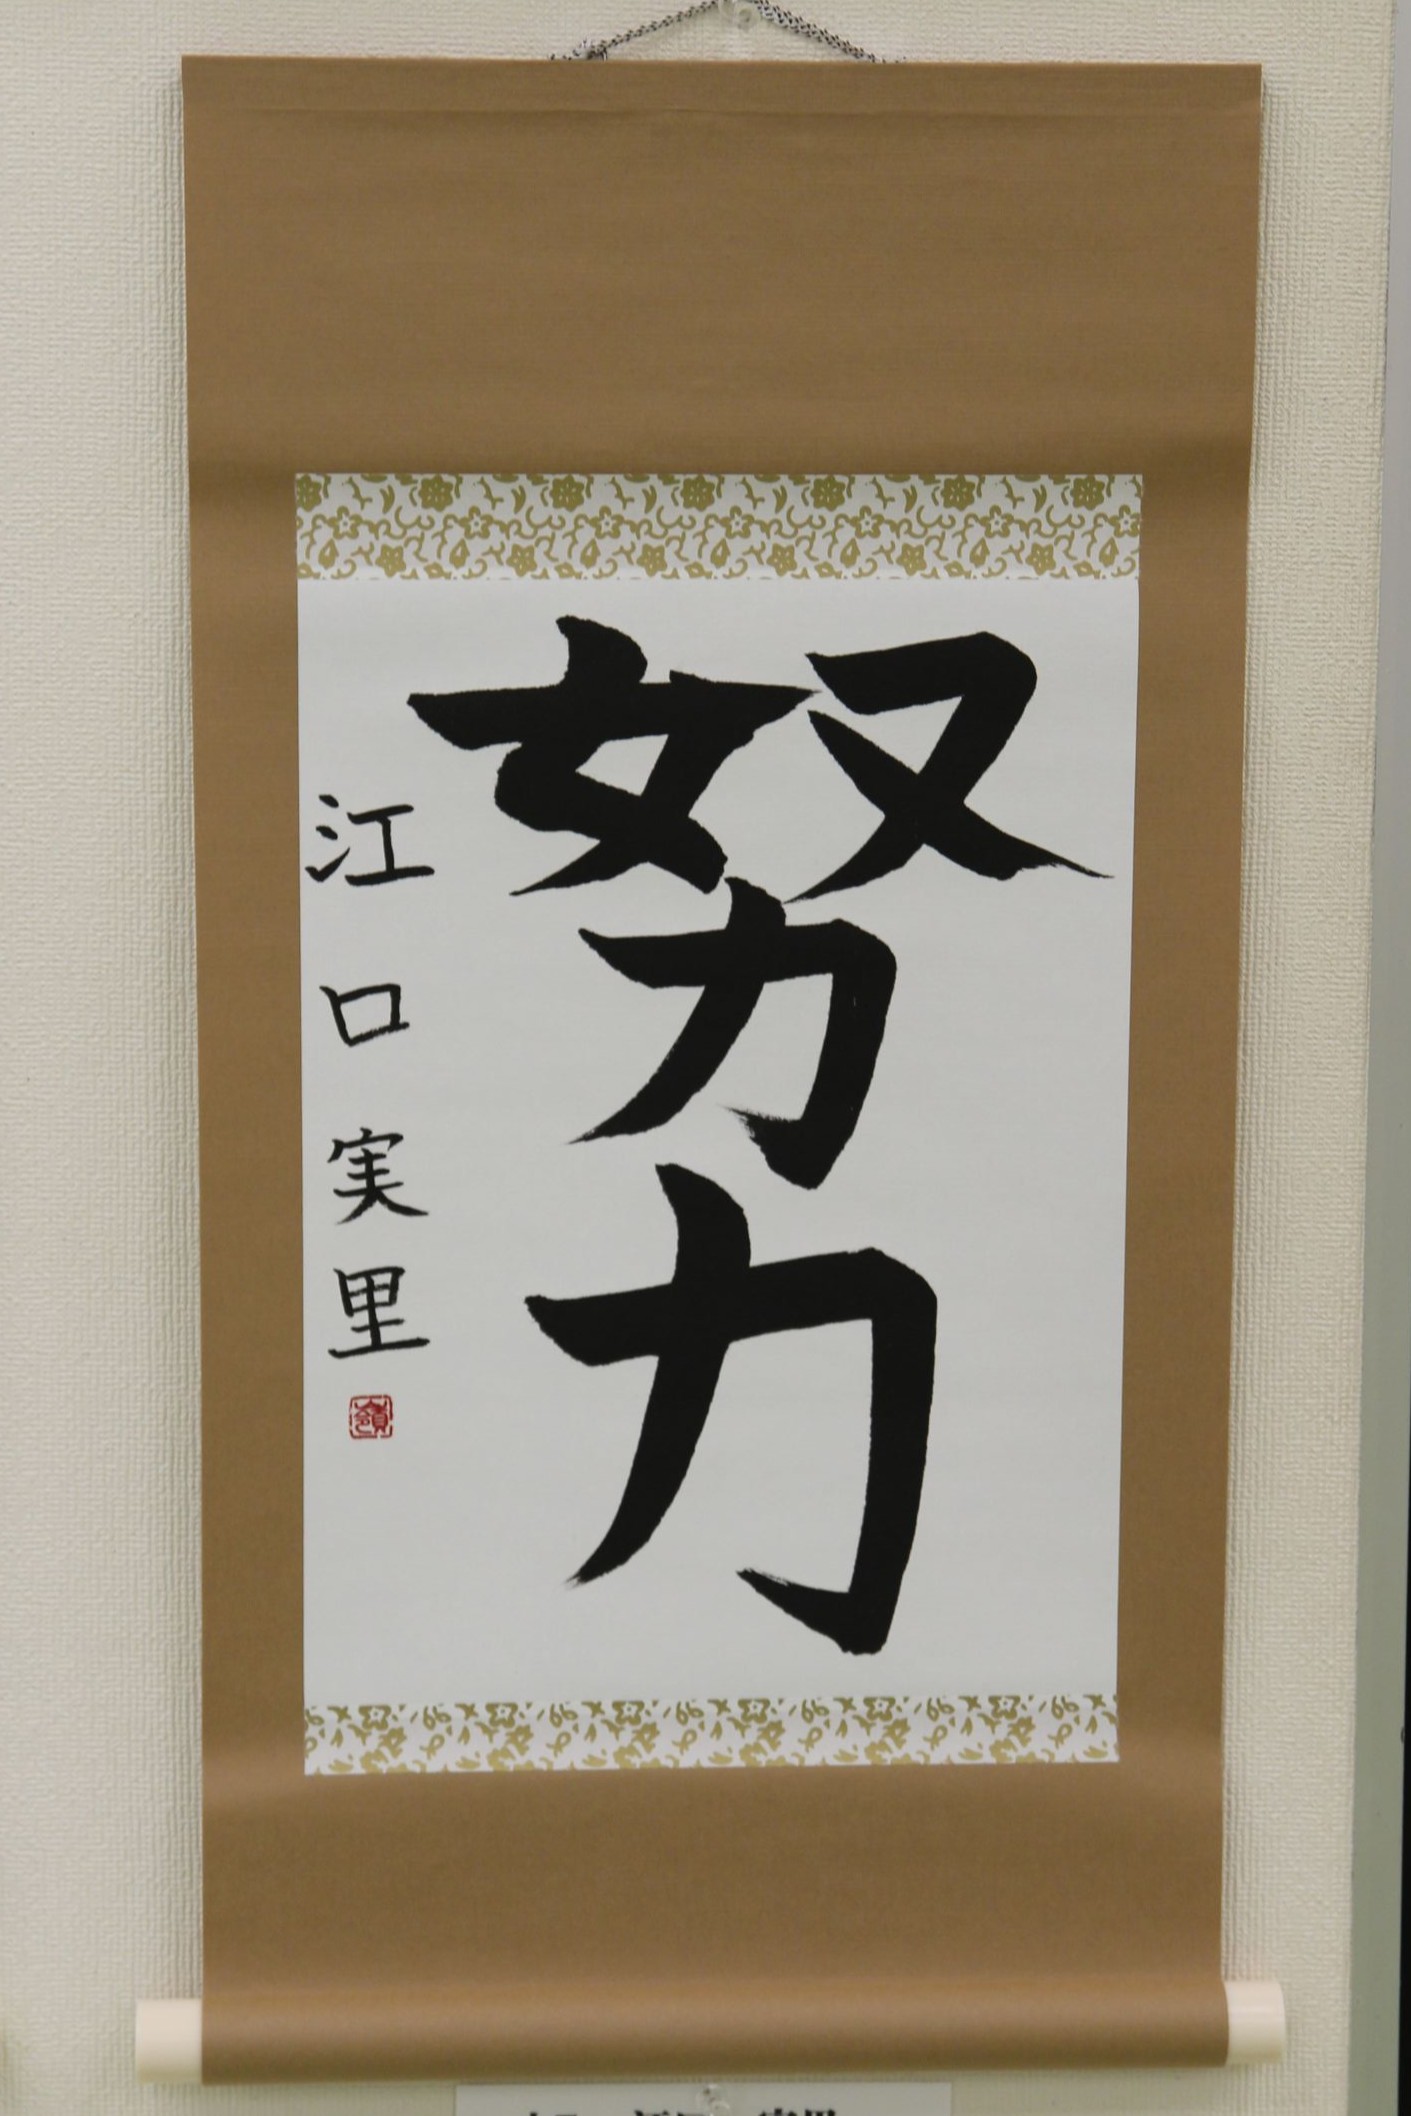 努力
江口実里